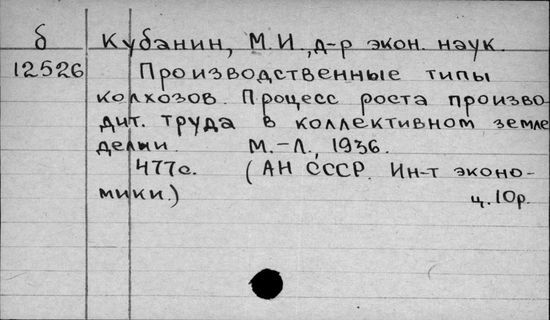 б Кубанин, М.И., д-р экон. наук.
12526 Производственные типы
колхозов. Процесс роста произво
дит. труда в коллективном земле
делии. М.-Л., 1936.
477с. (АН СССР. Ин-т эконо-
мики.) ц.10р.